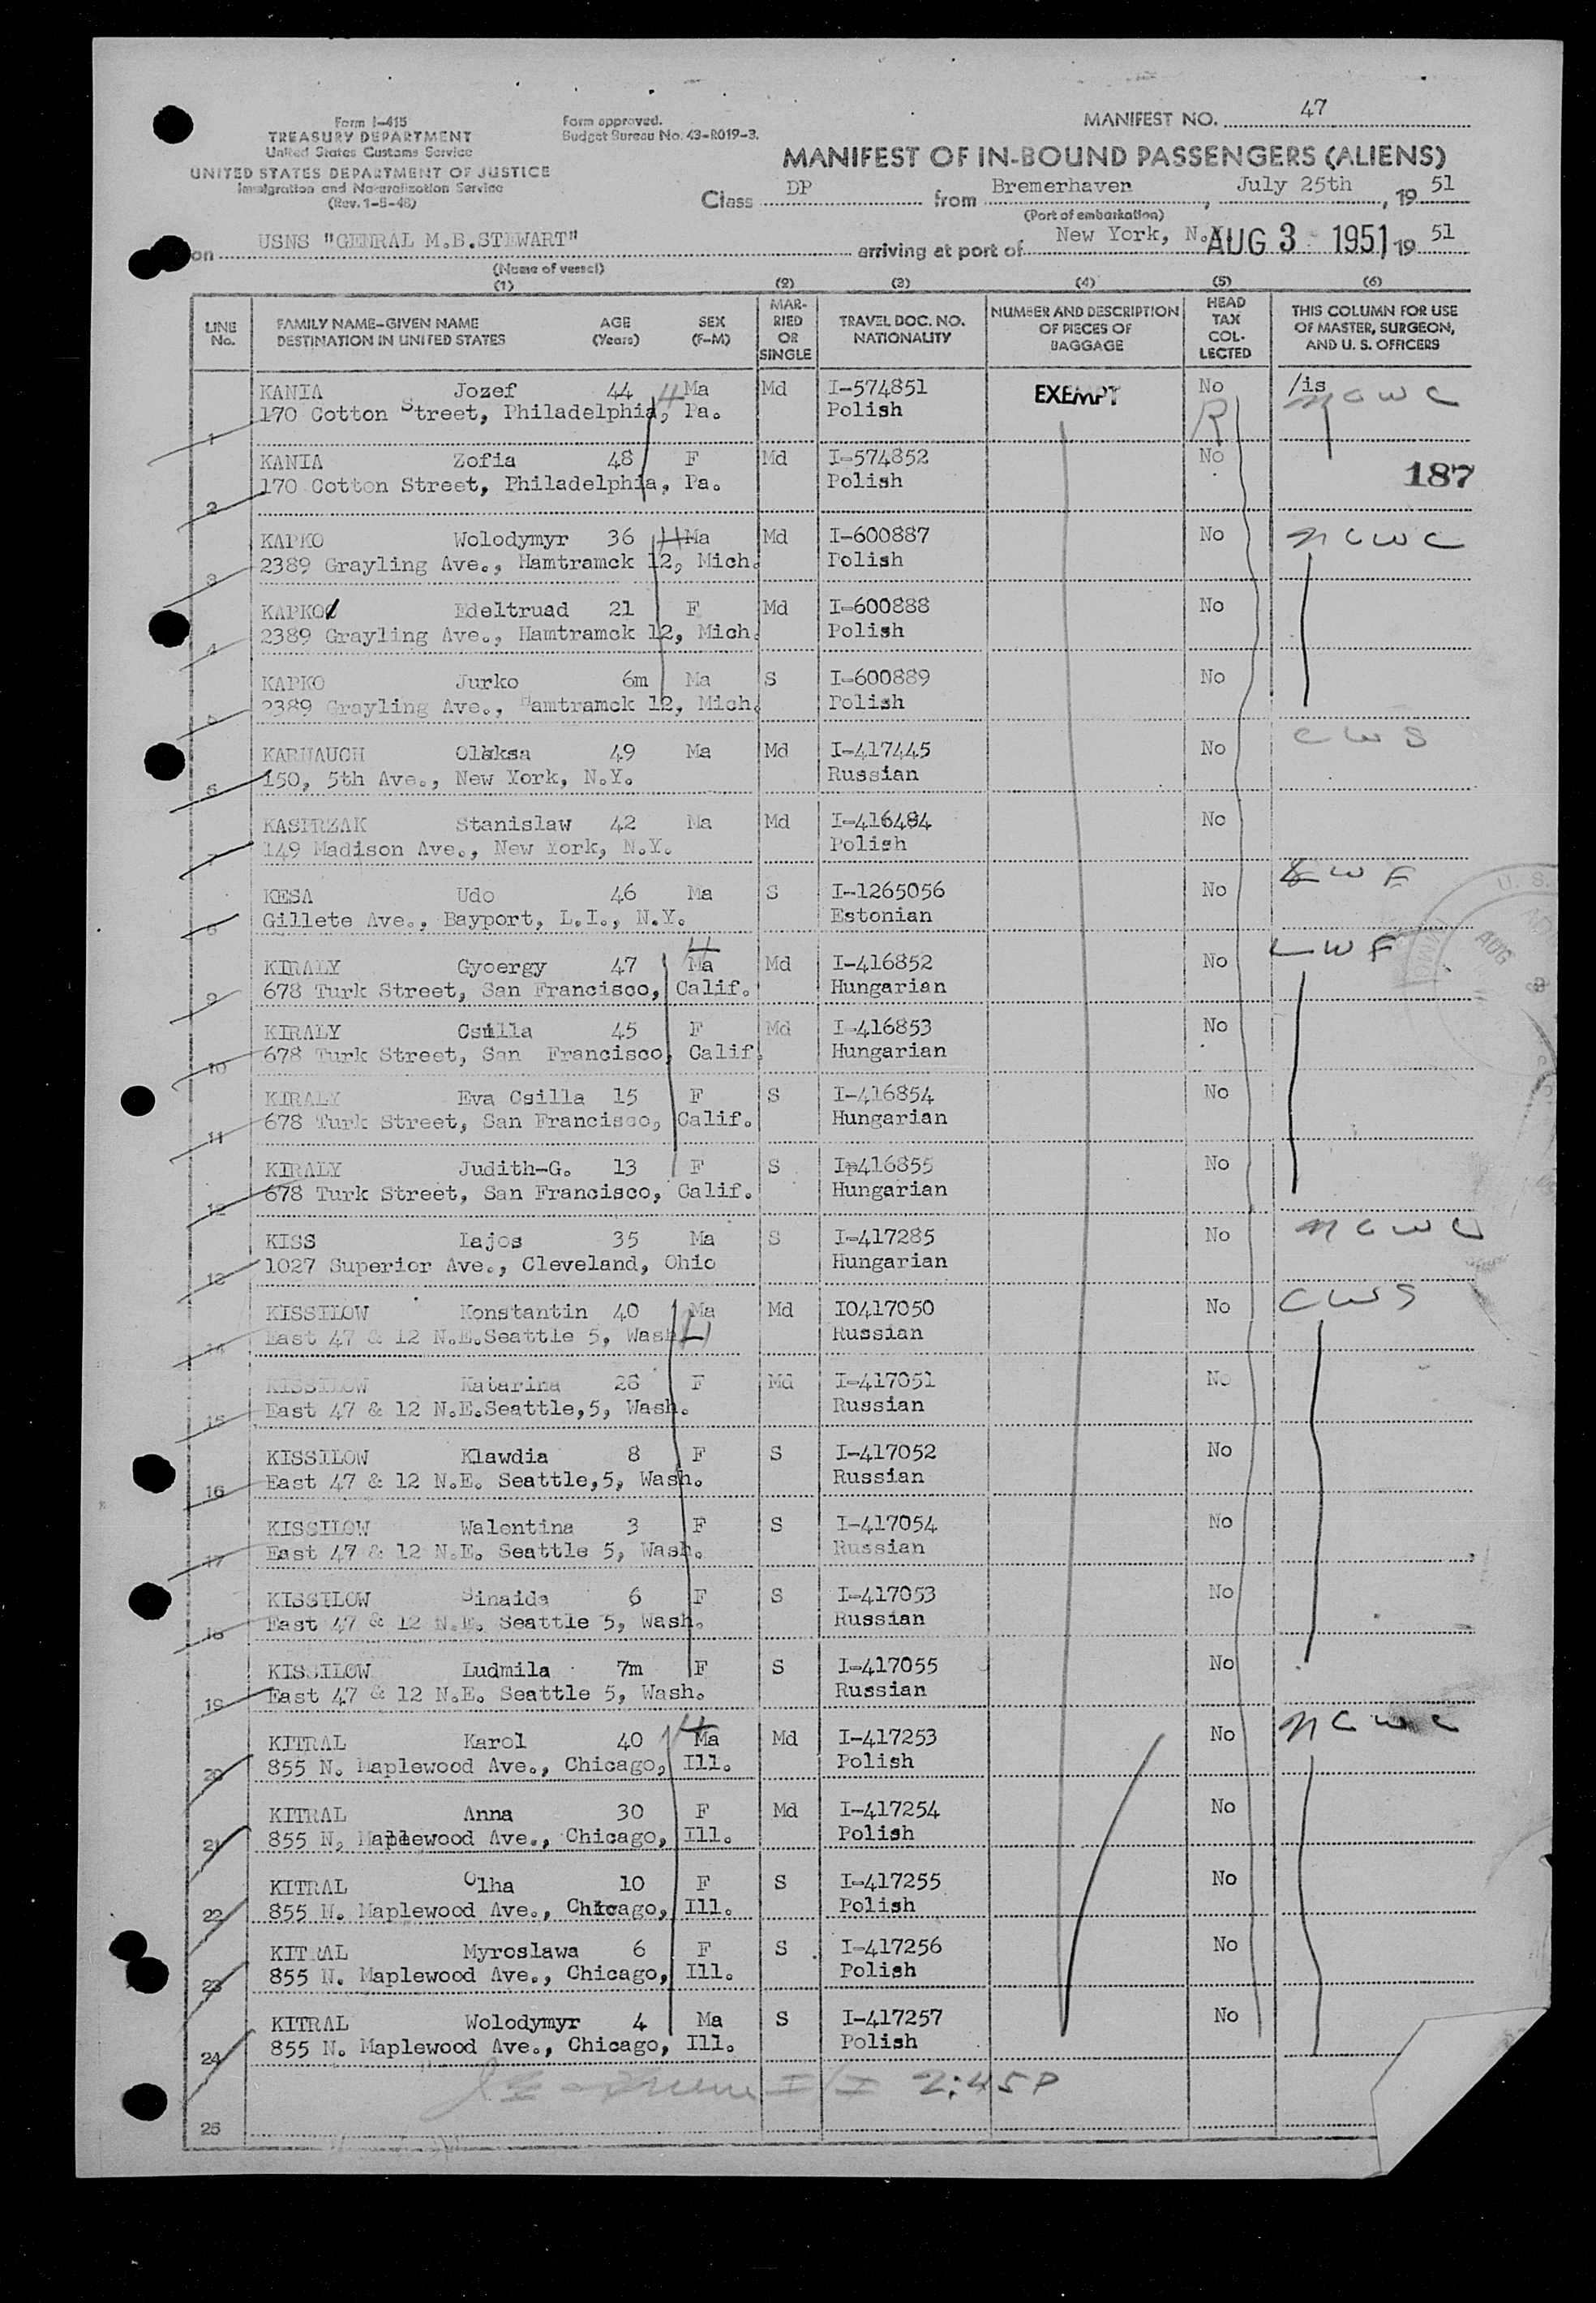 Form I-415
TREASURY DEPARTMENT
United States Customs Service
UNITED STATES DEPARTMENT OF JUSTICE
Immigration and Naturalization Service
(Rev. 1-5-48)
Form approved.
Budget Bureau No. 43-R019-3.
MANIFEST NO. 47
MANIFEST OF IN-BOUND PASSENGERS (ALIENS)
Class DP from Bremerhaven, July 25th, 19 51
(Port of embarkation)
on USNS "GENRAL M.B.STEWART" arriving at port of New York, N.Y. AUG 3 1951 19 51
(Name of vessel)
(1) (2) (3) (4) (5) (6)
LINE No. FAMILY NAME-GIVEN NAME DESTINATION IN UNITED STATES AGE (Years) SEX (F-M) MARRIED OR SINGLE TRAVEL DOC. NO. NATIONALITY NUMBER AND DESCRIPTION OF PIECES OF BAGGAGE HEAD TAX COLLECTED THIS COLUMN FOR USE OF MASTER, SURGEON, AND U. S. OFFICERS
KANIA Jozef 44 Ma Md I-574851 EXEMPT No /is
1 170 Cotton Street, Philadelphia, Pa. Polish R NCWC
KANIA Zofia 48 F Md I-574852 No
2 170 Cotton Street, Philadelphia, Pa. Polish 187
KAPKO Wolodymyr 36 Ma Md I-600887 No NCWC
3 2389 Grayling Ave., Hamtramck 12, Mich. Polish
KAPKO Edeltruad 21 F Md I-600888 No
4 2389 Grayling Ave., Hamtramck 12, Mich. Polish
KAPKO Jurko 6m Ma S I-600889 No
5 2389 Grayling Ave., Hamtramck 12, Mich. Polish
KARNAUCH Oleksa 49 Ma Md I-417445 No CWS
6 150, 5th Ave., New York, N.Y. Russian
KASIRZAK Stanislaw 42 Ma Md I-416484 No
7 149 Madison Ave., New York, N.Y. Polish
KESA Udo 46 Ma S I-1265056 No LWF
8 Gillete Ave., Bayport, L.I., N.Y. Estonian
KIRALY Gyoergy 47 Ma Md I-416852 No LWF
9 678 Turk Street, San Francisco, Calif. Hungarian
KIRALY Csilla 45 F Md I-416853 No
10 678 Turk Street, San Francisco, Calif. Hungarian
KIRALY Eva Csilla 15 F S I-416854 No
11 678 Turk Street, San Francisco, Calif. Hungarian
KIRALY Judith-G. 13 F S I-416855 No
12 678 Turk Street, San Francisco, Calif. Hungarian
KISS Lajos 35 Ma S I-417285 No NCWC
13 1027 Superior Ave., Cleveland, Ohio Hungarian
KISSILOW Konstantin 40 Ma Md I0417050 No CWS
14 East 47 & 12 N.E.Seattle 5, Wash. Russian
KISSILOW Katarina 28 F Md I-417051 No
15 East 47 & 12 N.E.Seattle,5, Wash. Russian
KISSILOW Klawdia 8 F S I-417052 No
16 East 47 & 12 N.E. Seattle,5, Wash. Russian
KISSILOW Walentina 3 F S I-417054 No
17 East 47 & 12 N.E. Seattle 5, Wash. Russian
KISSILOW Sinaida 6 F S I-417053 No
18 East 47 & 12 N.E. Seattle 5, Wash. Russian
KISSILOW Ludmila 7m F S I-417055 No
19 East 47 & 12 N.E. Seattle 5, Wash. Russian
KITRAL Karol 40 Ma Md I-417253 No NCWC
20 855 N. Maplewood Ave., Chicago, Ill. Polish
KITRAL Anna 30 F Md I-417254 No
21 855 N, Maplewood Ave., Chicago, Ill. Polish
KITRAL Olha 10 F S I-417255 No
22 855 N. Maplewood Ave., Chicago, Ill. Polish
KITRAL Myroslawa 6 F S I-417256 No
23 855 N. Maplewood Ave., Chicago, Ill. Polish
KITRAL Wolodymyr 4 Ma S I-417257 No
24 855 N. Maplewood Ave., Chicago, Ill. Polish
2:45P
25